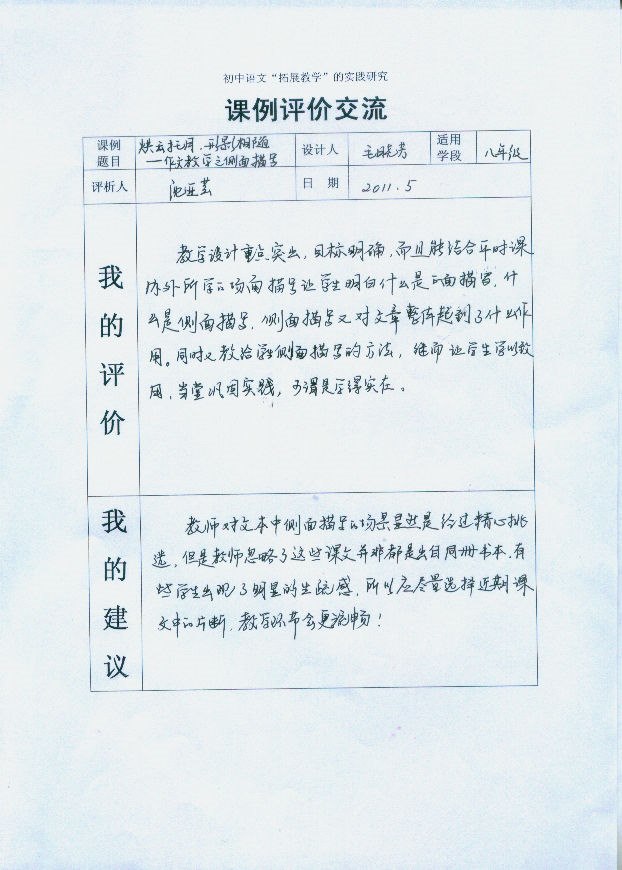 初中语文“拓展教学”的实践研究
课例评价交流
课例
题目
烘云托月，形影相随
—作文教学之侧面描写
设计人
毛晓芳
适用
学段
八年级
评析人
沈亚芸
日 期
2011.5
我的评价
教学设计重点突出，目标明确，而且能结合平时课
内外所学的场面描写让学生明白什么是正面描写，什
么是侧面描写，侧面描写又对文章整体起到了什么作
用。同时又教给学生侧面描写的方法，继而让学生学以致
用，当堂巩固实践，可谓是学得实在。
我的建议
教师对文本中侧面描写的场景显然是经过精心挑
选，但是教师忽略了这些课文并非都是出自同册书本，有
些学生出现了明显的生疏感，所以应尽量选择近期课
文中的片断，教学环节会更流畅！